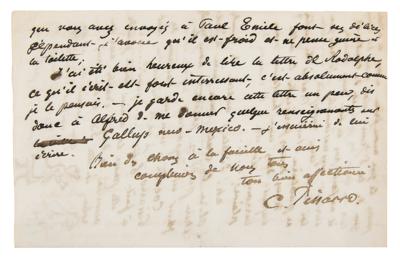 que vous avez envoyés à Paul Emile font ses délices
cependant j'avoue qu'il est froid et ne pense guère à
la toilette.
J'ai été bien heureux de lire la lettre de Rodolphe,
ce qu'il écrit est fort interessant, c'est absolument comme
je le pensais. — je garde encore cette lettre un peu, dis
donc à Alfred de me donner quelque renseignements sur
Gallup new-Mexico. — de lui
écrire.
Bien des choses à la famille et amis
de nous tous
ton bien affectionné
C. Pissarro